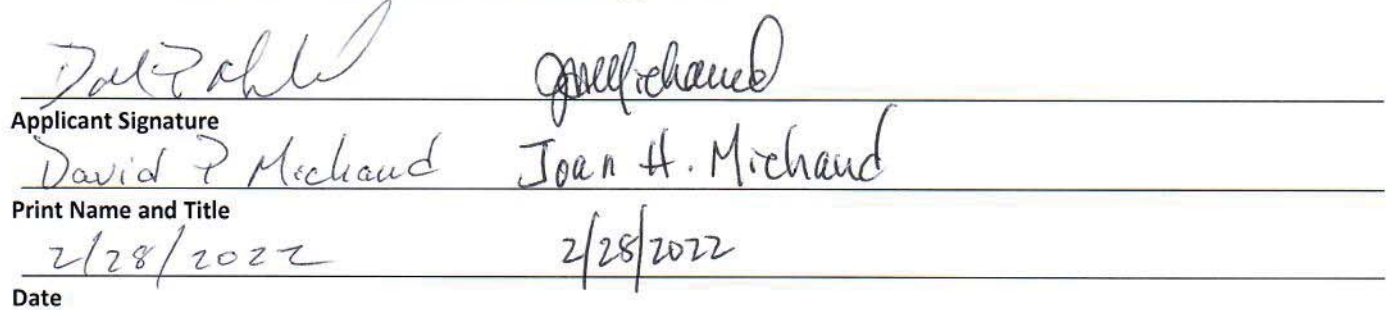 Applicant Signature
David P Michaud Joan H. Michaud
Print Name and Title
2/28/2022 2/28/2022
Date